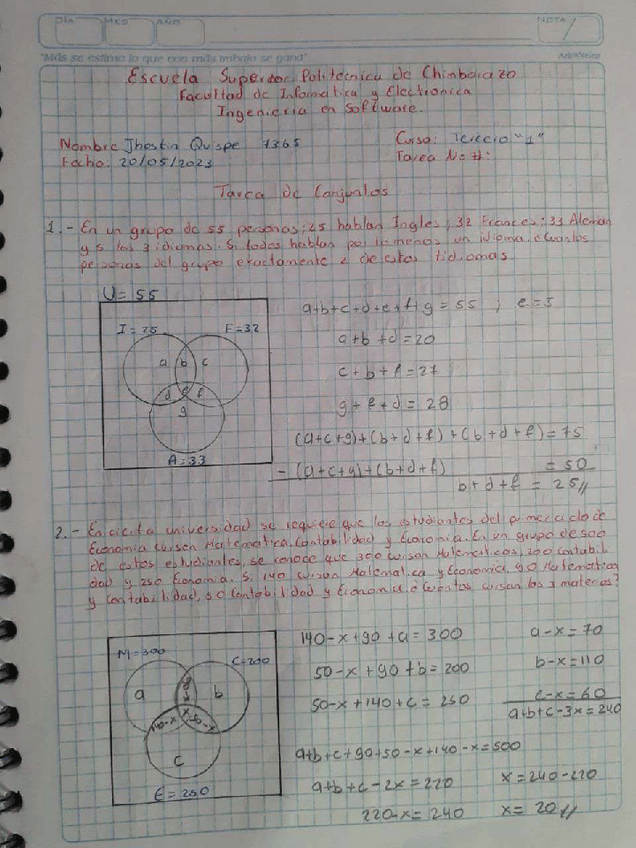 DÍA
MES
AÑO
NOTA
"Más se estima lo que con más trabajo se gana"
Escuela Superior Politecnica de Chimborazo
Facultad de Informatica y Electronica
Ingenieria en Software.
Nombre: Jhostin Quispe 7365
Curso: Tercero "1"
Fecha: 20/05/2023
Tarea N: #:
Tarea de Conjuntos
1.- En un grupo de 55 personas; 25 hablan Ingles; 32 Frances; 33 Aleman
y 5 los 3 idiomas. Si todos hablan por lo menos un idioma. ¿Cuantos
personas del grupo exactamente 2 de estos idiomas
U = 55
I = 25
F=32
a b c
d e f
g
A=33
a+b+c+d+e+f+g = 55 ; e=5
a+b+d=20
c+b+f=27
g+f+d = 28
(a+c+g)+(b+d+f)+(b+d+f)=75
-(a+c+g)+(b+d+f) = 50
b+d+f = 25//
2.- En cierta universidad se requiere que los estudiantes del primer ciclo de
Economia cursen Matematica, Contabilidad y Economia. En un grupo de 500
de estos estudiantes, se conoce que 300 cursan Matematicas, 200 Contabili
dad y 250 Economia. Si 140 cursan Matematica y Economia, 90 Matematica
y Contabilidad, 50 Contabilidad y Economia ¿Cuantos cursan los 3 materias?
M=300
C=200
a
90-x
b
140-x
x
50-x
c
E=250
140-x+90+a=300
50-x+90+b=200
50-x+140+c=250
a+b+c+90+50-x+140-x=500
a+b+c-2x=220
220-x=240
a-x=70
b-x=110
c-x=60
a+b+c-3x=240
x=240-220
x= 20//